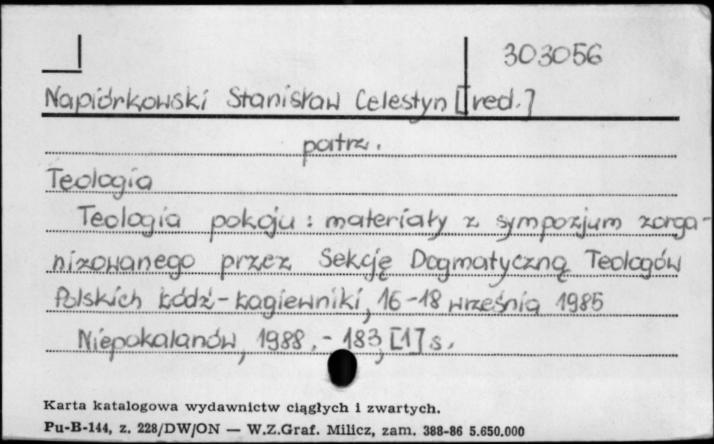 303056
Napiórkowski Stanisław Celestyn [red.]
patrz.
Teologia
Teologia pokoju : materiały z sympozjum zorga-
nizowanego przez Sekcję Dogmatyczną Teologów
Polskich Łódź-Łagiewniki, 16-18 września 1985
Niepokalanów, 1988. - 183, [1] s.
Karta katalogowa wydawnictw ciągłych i zwartych.
Pu-B-144, z. 228/DW/ON — W.Z.Graf. Milicz, zam. 388-86 5.650.000